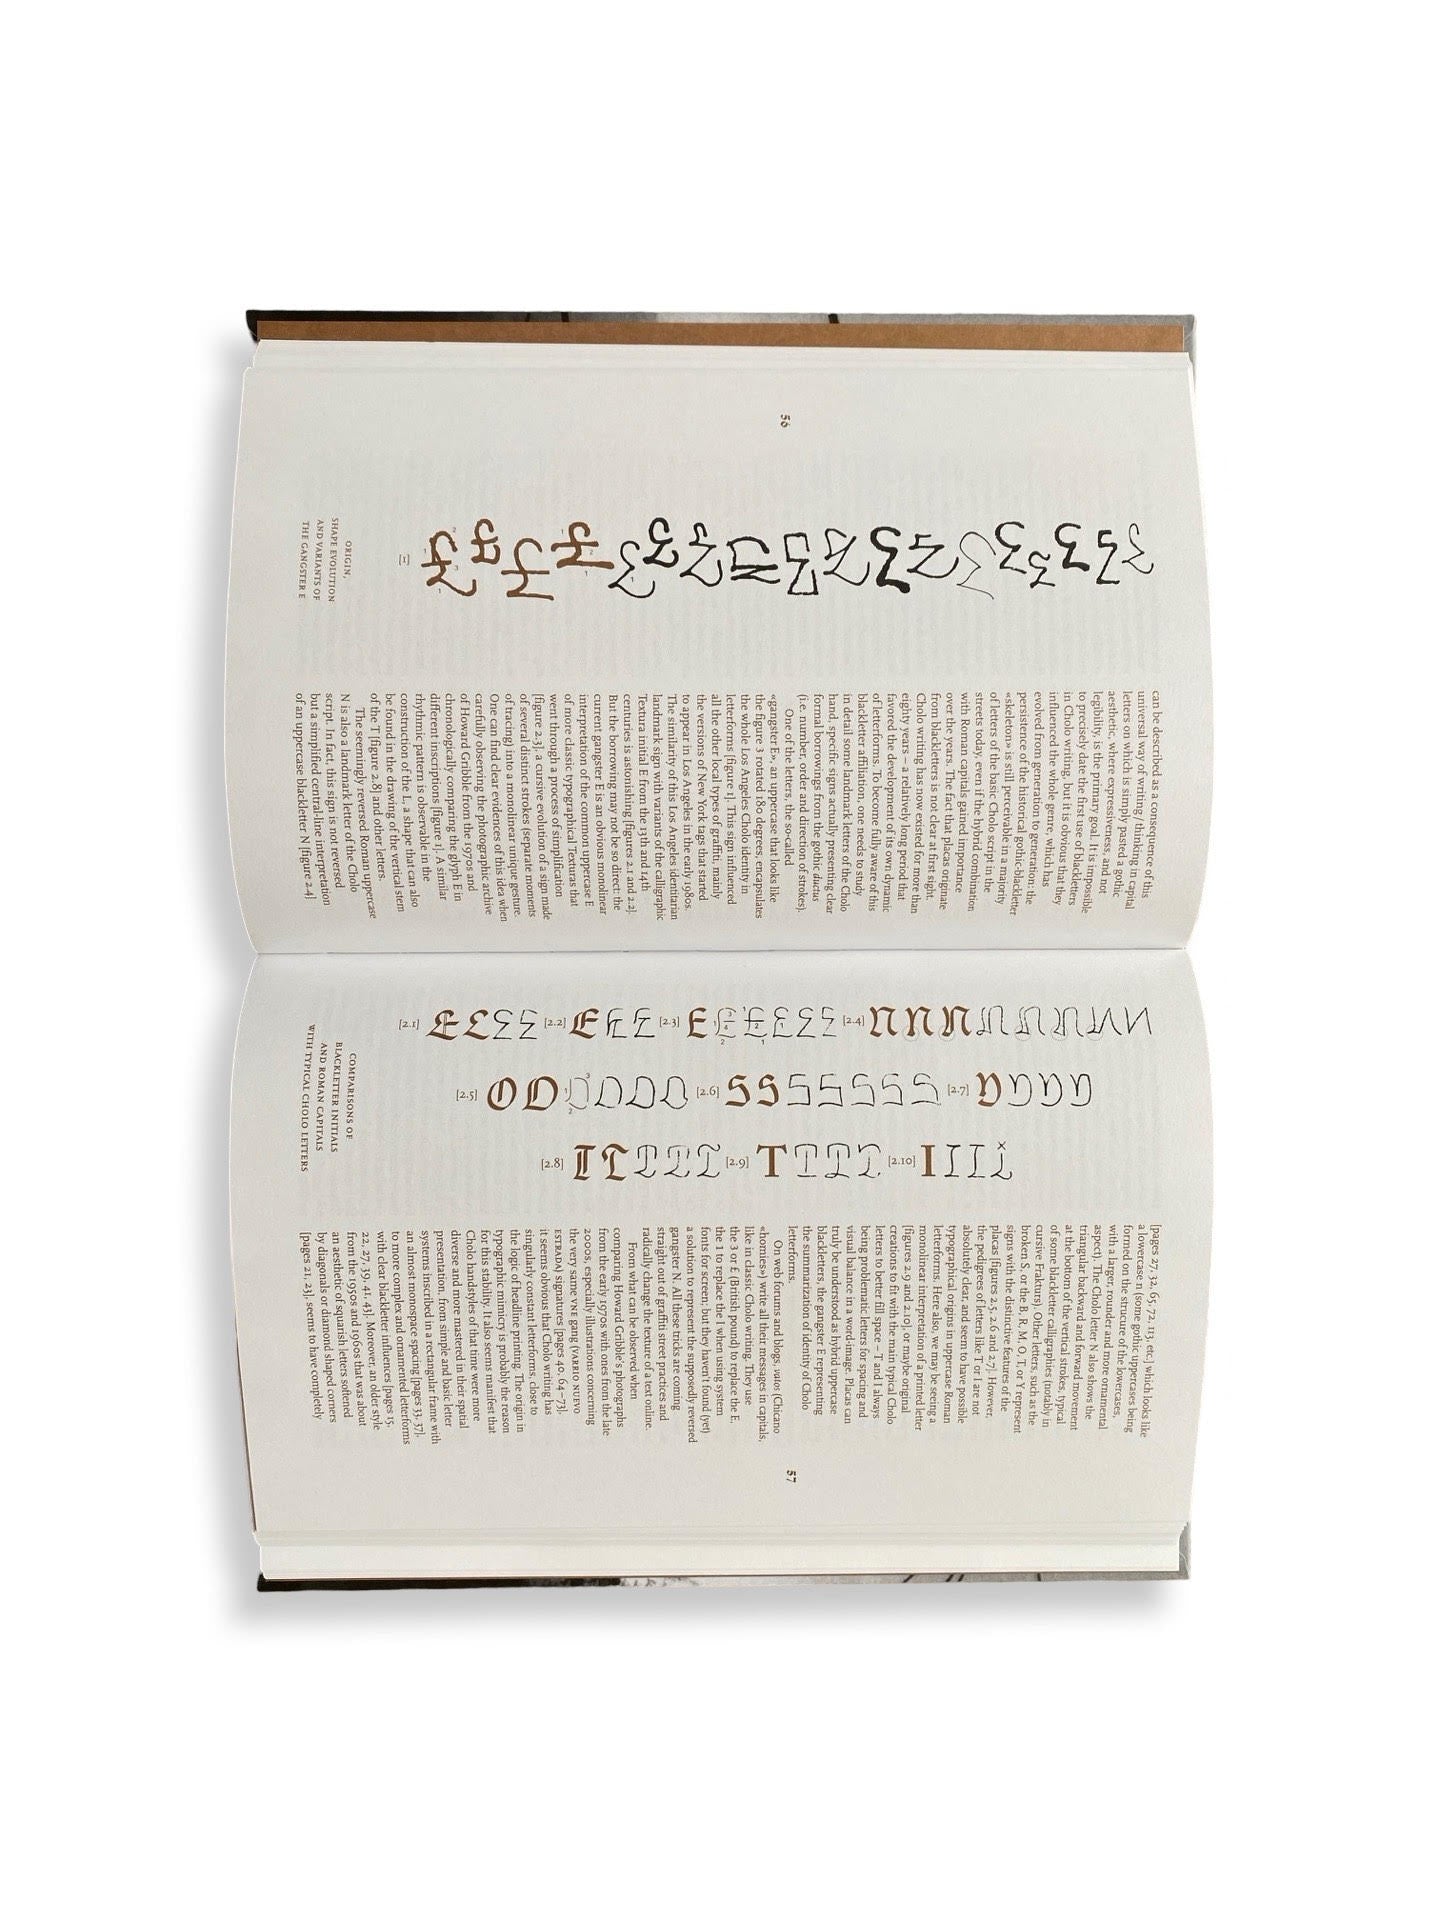 56
[1]
ORIGIN,
SHAPE EVOLUTION
AND VARIANTS OF
THE GANGSTER E
can be described as a consequence of this
universal way of writing / thinking in capital
letters on which is simply pasted a gothic
aesthetic, where expressiveness, and not
legibility, is the primary goal. It is impossible
to precisely date the first use of blackletters
in Cholo writing, but it is obvious that they
influenced the whole genre, which has
evolved from generation to generation: the
persistence of the historical gothic-blackletter
«skeleton» is still perceivable in a majority
of letters of the basic Cholo script in the
streets today, even if the hybrid combination
with Roman capitals gained importance
over the years. The fact that placas originate
from blackletters is not clear at first sight.
Cholo writing has now existed for more than
eighty years – a relatively long period that
favored the development of its own dynamic
of letterforms. To become fully aware of this
blackletter affiliation, one needs to study
in detail some landmark letters of the Cholo
hand, specific signs actually presenting clear
formal borrowings from the gothic ductus
(i.e. number, order and direction of strokes).
One of the letters, the so-called
«gangster E», an uppercase that looks like
the figure 3 rotated 180 degrees, encapsulates
the whole Los Angeles Cholo identity in
letterforms [figure 1]. This sign influenced
all the other local types of graffiti, mainly
the versions of New York tags that started
to appear in Los Angeles in the early 1980s.
The similarity of this Los Angeles identitarian
landmark sign with variants of the calligraphic
Textura initial E from the 13th and 14th
centuries is astonishing [figures 2.1 and 2.2].
But the borrowing may not be so direct: the
current gangster E is an obvious monolinear
interpretation of the common uppercase E
of more classic typographical Texturas that
went through a process of simplification
[figure 2.3], a cursive evolution of a sign made
of several distinct strokes (separate moments
of tracing) into a monolinear unique gesture.
One can find clear evidences of this idea when
carefully observing the photographic archive
of Howard Gribble from the 1970s and
chronologically comparing the glyph E in
different inscriptions [figure 1]. A similar
rhythmic pattern is observable in the
construction of the L, a shape that can also
be found in the drawing of the vertical stem
of the T [figure 2.8] and other letters.
The seemingly reversed Roman uppercase
N is also a landmark letter of the Cholo
script. In fact, this sign is not reversed
but a simplified central-line interpretation
of an uppercase blackletter N [figure 2.4]
[2.1]
[2.2]
[2.3]
[2.4]
[2.5]
[2.6]
[2.7]
[2.8]
[2.9]
[2.10]
COMPARISONS OF
BLACKLETTER INITIALS
AND ROMAN CAPITALS
WITH TYPICAL CHOLO LETTERS
[pages 27, 32, 65, 72, 113, etc.] which looks like
a lowercase n (some gothic uppercases being
formed on the structure of the lowercases,
with a larger, rounder and more ornamental
aspect). The Cholo letter N also shows the
triangular backward and forward movement
at the bottom of the vertical strokes, typical
of some blackletter calligraphies (notably in
cursive Frakturs). Other letters, such as the
broken S, or the B, R, M, O, T, or Y represent
signs with the distinctive features of the
placas [figures 2.5, 2.6 and 2.7]. However,
the pedigrees of letters like T or I are not
absolutely clear, and seem to have possible
typographical origins in uppercase Roman
letterforms. Here also, we may be seeing a
monolinear interpretation of a printed letter
[figures 2.9 and 2.10], or maybe original
creations to fit with the main typical Cholo
letters to better fill space – T and I always
being problematic letters for spacing and
visual balance in a word-image. Placas can
truly be understood as hybrid uppercase
blackletters, the gangster E representing
the summarization of identity of Cholo
letterforms.
On web forums and blogs, vatos (Chicano
«homies») write all their messages in capitals,
like in classic Cholo writing. They use
the 3 or £ (British pound) to replace the E,
the 1 to replace the I when using system
fonts for screen; but they haven't found (yet)
a solution to represent the supposedly reversed
gangster N. All these tricks are coming
straight out of graffiti street practices and
radically change the texture of a text online.
From what can be observed when
comparing Howard Gribble's photographs
from the early 1970s with ones from the late
2000s, especially illustrations concerning
the very same VNE gang (VARRIO NUEVO
ESTRADA) signatures [pages 40, 64–73],
it seems obvious that Cholo writing has
singularly constant letterforms, close to
the logic of headline printing. The origin in
typographic mimicry is probably the reason
for this stability. It also seems manifest that
Cholo handstyles of that time were more
diverse and more mastered in their spatial
presentation, from simple and basic letter
systems inscribed in a rectangular frame with
an almost monospace spacing [pages 33, 37],
to more complex and ornamented letterforms
with clear blackletter influences [pages 15,
22, 27, 39, 41, 43]. Moreover, an older style
from the 1950s and 1960s that was about
an aesthetic of squarish letters softened
by diagonals or diamond shaped corners
[pages 21, 23], seems to have completely
57